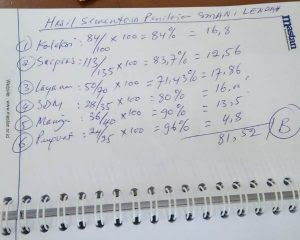 Hasil Sementara Penilaian SMAN 1 LENDAH
① Koleksi : 84/100 x 100 = 84% = 16,8
② Sarpras : 113/135 x 100 = 83,7% = 12,56
③ Layanan : 50/70 x 100 = 71,43% = 17,86
④ SDM : 28/35 x 100 = 80% = 16,0
⑤ Manaj : 36/40 x 100 = 90% = 13,5
⑥ : 24/25 x 100 = 96% = 4,8
81,52 B
Maslan